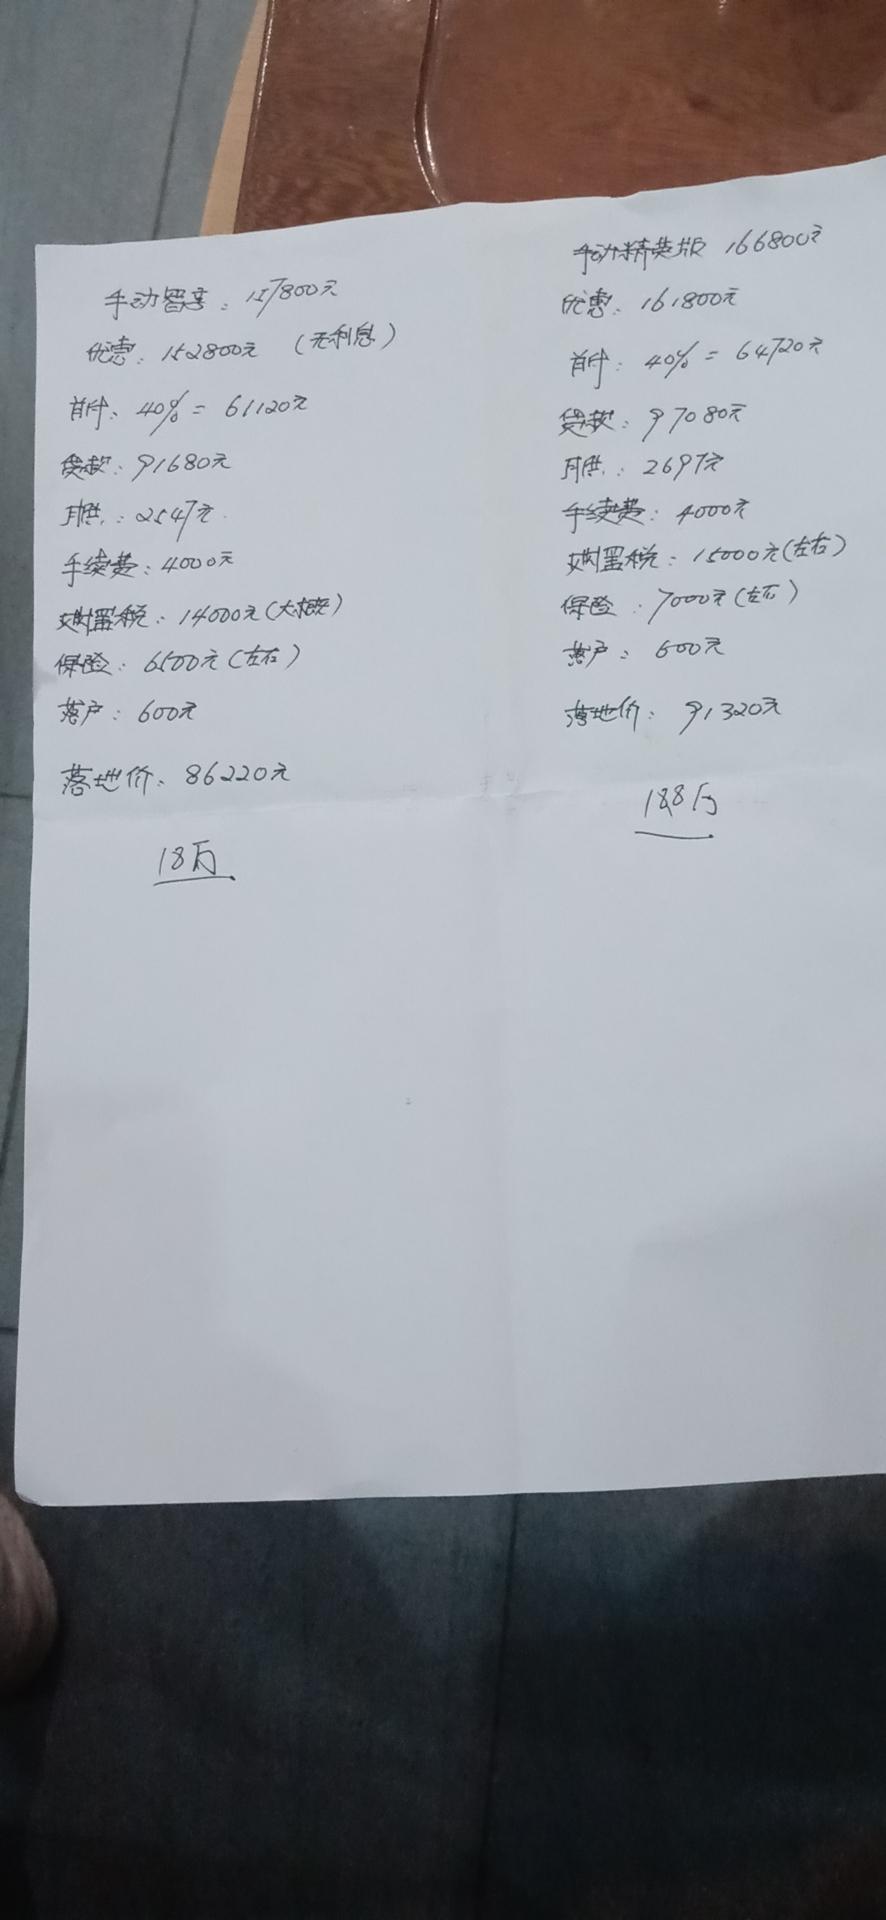 手动智享：157800元
优惠：152800元 （无利息）
首付：40% = 61120元
贷款：91680元
月供：2547元
手续费：4000元
购置税：14000元（大概）
保险：6500元（左右）
落户：600元
落地价：86220元
18万
手动精英版 166800元
优惠：161800元
首付：40% = 64720元
贷款：97080元
月供：2697元
手续费：4000元
购置税：15000元（左右）
保险：7000元（左右）
落户：600元
落地价：91320元
18.8万